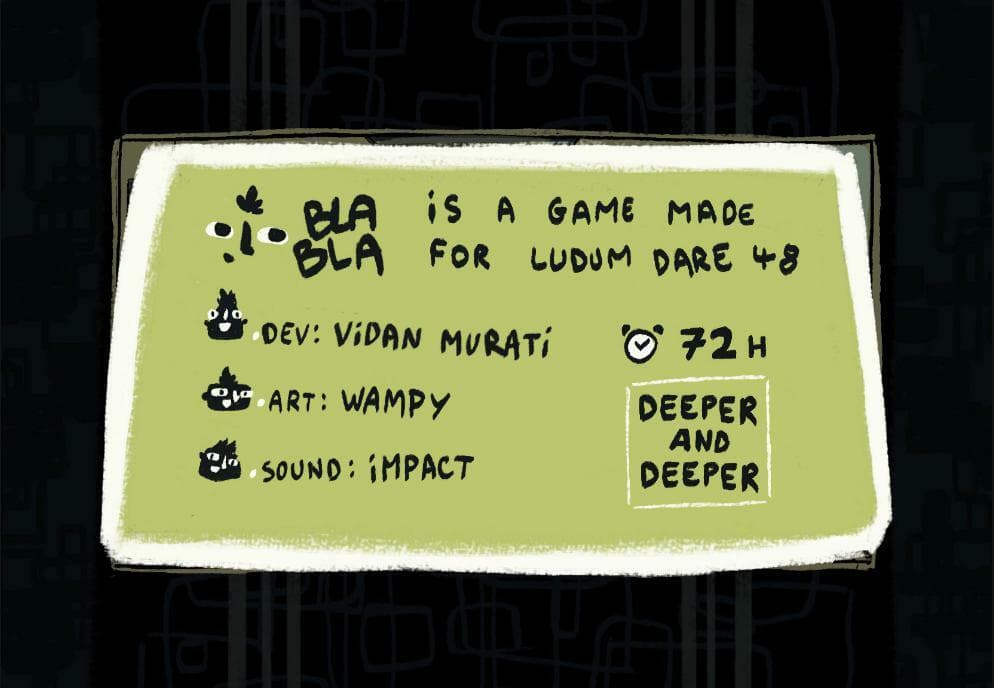 BLA BLA iS A GAME MADE
FOR LUDUM DARE 48
DEV: ViDAN MURATi
72 H
ART: WAMPY
SOUND: iMPACT
DEEPER
AND
DEEPER